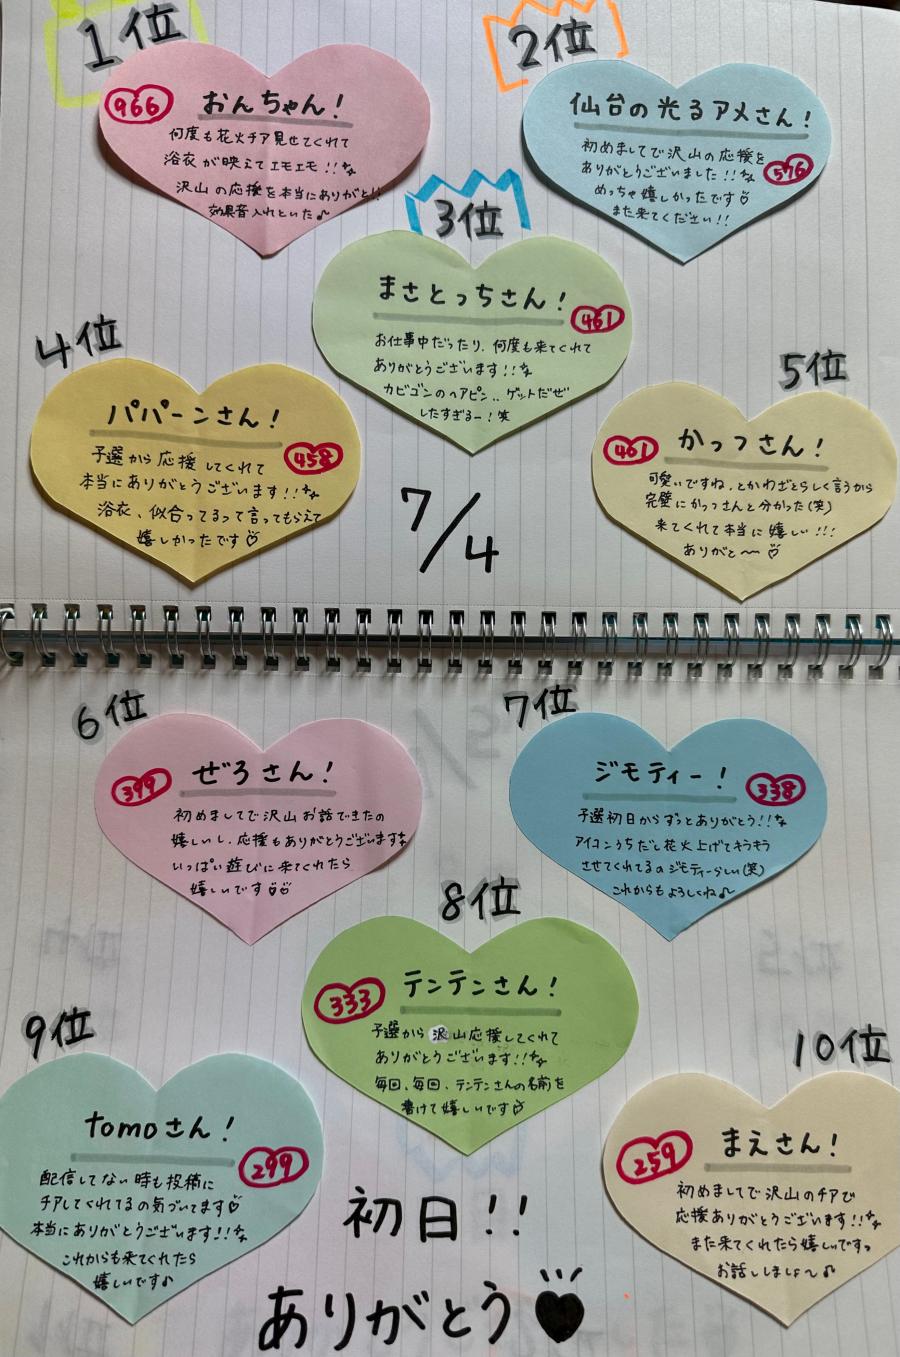 1位
966
おんちゃん!
何度も花火チア見せてくれて
浴衣が映えてエモエモ!!
沢山の応援を本当にありがと!!
効果音入れといた♪
2位
仙台の光るアメさん!
576
初めましてで沢山の応援を
ありがとうございました!!
めっちゃ嬉しかったです♡
また来てください!!
3位
まさとっちさん!
461
お仕事中だったり、何度も来てくれて
ありがとうございます!!
カビゴンのヘアピン..ゲットだぜ
したすぎるー!笑
4位
パパーンさん!
458
予選から応援してくれて
本当にありがとうございます!!
浴衣、似合ってるって言ってもらえて
嬉しかったです♡
5位
461
かっつさん!
可愛いですね、とかわざとらしく言うから
完璧にかっつさんと分かった(笑)
来てくれて本当に嬉しい!!!
ありがと〜♡
7/4
6位
399
ぜろさん!
初めましてで沢山お話できたの
嬉しいし、応援もありがとうございます
いっぱい遊びに来てくれたら
嬉しいです♡♡
7位
ジモティー!
338
予選初日からずっとありがとう!!
アイコンうちだし花火上げてキラキラ
させてくれてるのジモティーらしい(笑)
これからもよろしくね♪
8位
333
テンテンさん!
予選から沢山応援してくれて
ありがとうございます!!
毎回、毎回、テンテンさんの名前を
書けて嬉しいです♡
9位
tomoさん!
299
配信してない時も投稿に
チアしてくれてるの気づいてます♡
本当にありがとうございます!!
これからも来てくれたら
嬉しいです♪
10位
259
まえさん!
初めましてで沢山のチアで
応援ありがとうございます!!
また来てくれたら嬉しいですっ
お話ししましょ〜♪
初日!!
ありがとう♥